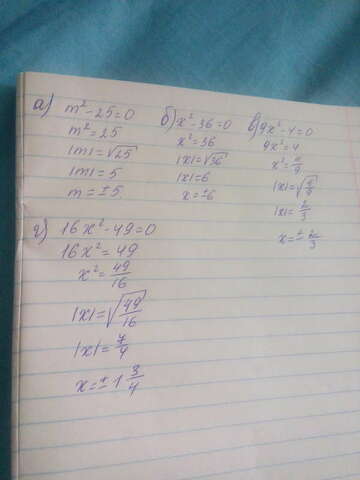 а) m²-25=0
m²=25
|m|=√25
|m|=5
m=±5
б) x²-36=0
x²=36
|x|=√36
|x|=6
x=±6
в) 9x²-4=0
9x²=4
x²=4/9
|x|=√4/9
|x|=2/3
x=±2/3
г) 16x²-49=0
16x²=49
x²=49/16
|x|=√49/16
|x|=7/4
x=±1 3/4